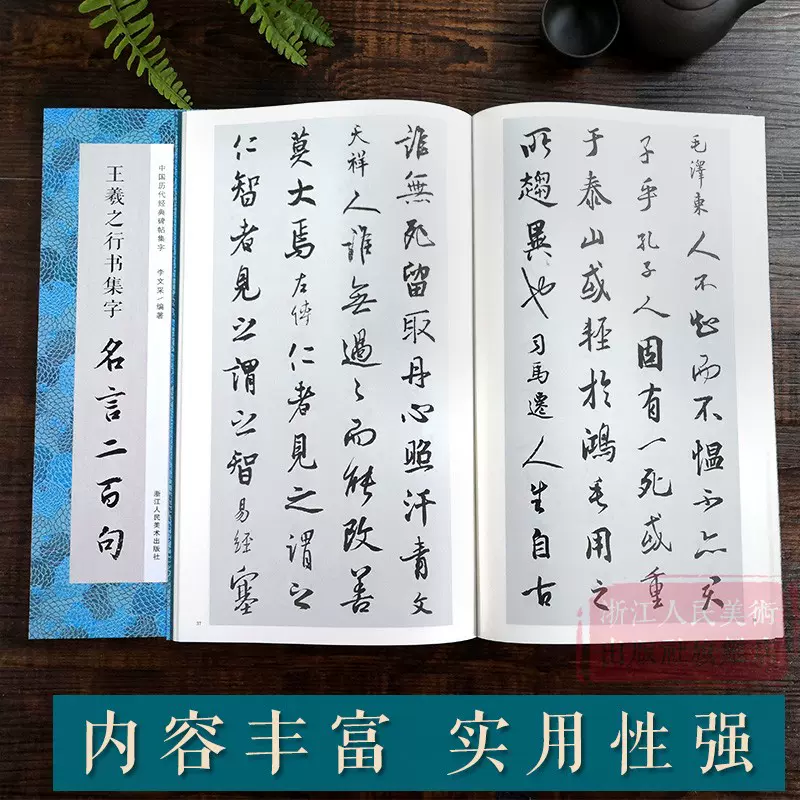 中国历代经典碑帖集字 李文采/编著
王羲之行书集字 名言二百句
浙江人民美术出版社
毛澤東 人不知而不愠不亦君
子乎 孔子 人固有一死或重
于泰山或輕於鴻毛用之
所趨異也 司馬遷 人生自古
誰無死留取丹心照汗青 文
天祥 人誰無過〻而能改善
莫大焉 左傳 仁者見之謂之
仁智者見之謂之智 易經 塞
浙江人民美術
出版社
内容丰富 实用性强